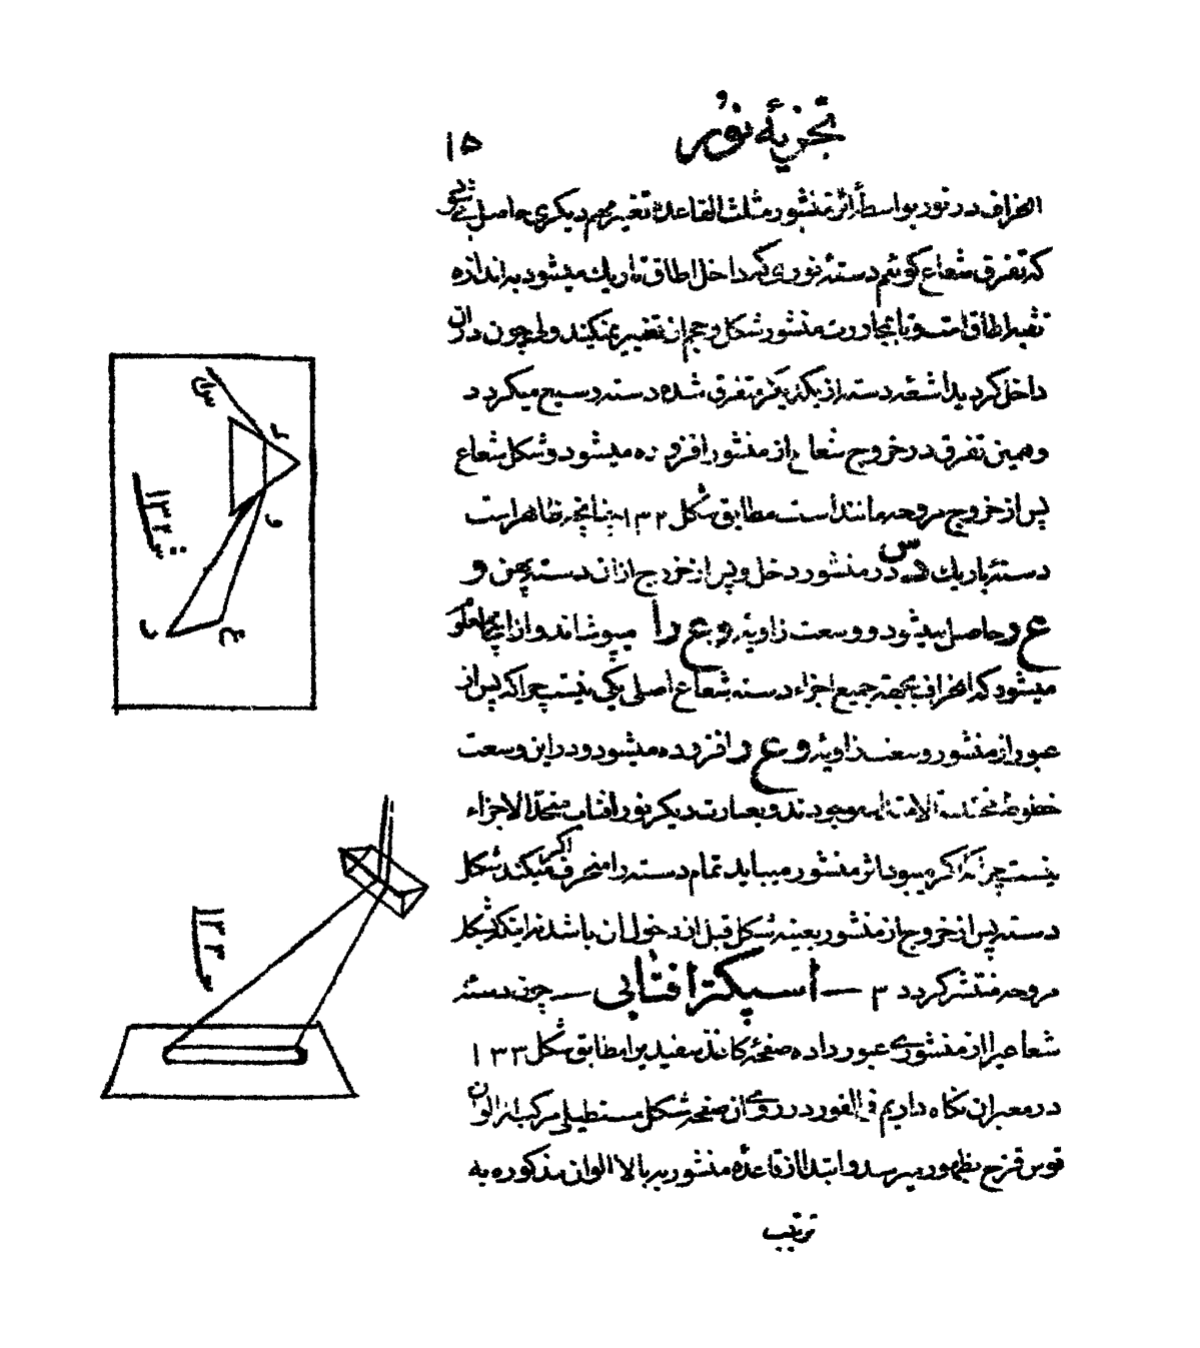 تجزیهٔ نور
۱۵
انحراف در نور بواسطهٔ اثر منشور مثلث القاعده تغییر مهم دیکری حاصل میشود
که تفرق شعاع کوئیم دستهٔ نوری که داخل اطاق تاریك میشود به اندازه
ثقبه اطاق است و تا بمجاورت منشور شکل و حجم ان تغییر نمیکند ولی چون در ان
داخل کردید اشعه دسته از یکدیکر متفرق شده دسته وسیع میکردد
و همین تفرق در خروج شعاع از منشور افزوده میشود و شکل شعاع
پس از خروج مروحه مانند است مطابق شکل ۱۳۲ چنانچه ظاهر است
دستهٔ باریك س د در منشور دخل و پس از خروج از ان دسته پهن و
ع ر حاصل میشود و وسعت زاویهٔ و ع ر را میپوشاند و از اینجا معلوم
میشود که انحراف بجهة جمیع اجزاء دسته شعاع اصلی یکی نیست چرا که پس از
عبور از منشور وسعت زاویهٔ و ع ر افزوده میشود و در این وسعت
خطوط مختلفة الامتداد موجودند و بعبارت دیکر نور افتاب متحد الاجزاء
نیست چرا که اکر میبود اثر منشور میباید تمام دسته را منحرف میکند شکل
دسته پس از خروج از منشور بعینه شکل قبل از دخول ان باشد نه اینکه بشکل
مروحه منتشر کردد ۳ — اسپکتر افتابی — چون دستهٔ
شعاعی را از منشوری عبور داده صفحهٔ کاغذ سفید یرا مطابق شکل ۱۳۳
در معبر ان نکاه داریم فی الفور در روی ان صفحه شکل مستطیلی مرکب از الوان
قوس قزح بظهور میرسد و ابتدا از قاعدهٔ منشور ببالا الوان مذکوره به
ترتیب
س
د
و
ش ۱۳۲
ر
ع
ش ۱۳۳